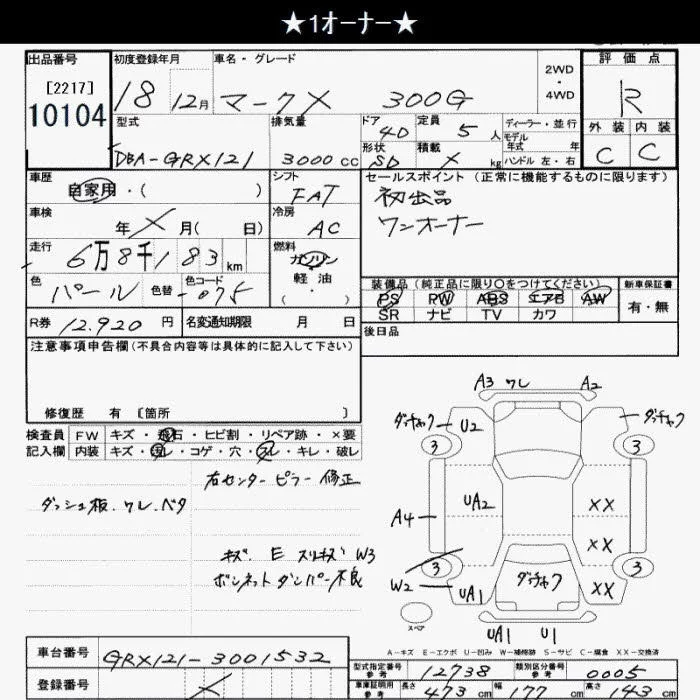 ★1オーナー★
出品番号
[2217]
10104
初度登録年月
18 12月
車名・グレード
マークX 300G
2WD
・
4WD
評価点
R
外装 内装
C C
型式
DBA-GRX121
排気量
3000cc
ドア 4D
形状 SD
定員 5人
積載 X kg
ディーラー・並行
モデル
年式 年
ハンドル 左・右
車歴
自家用・( )
シフト
FAT
セールスポイント(正常に機能するものに限ります)
初出品
ワンオーナー
車検
年 X 月( 日)
冷房
AC
走行
6万8千183km
燃料
ガソリン
軽油
・( )
色
パール 色替
色コード
-075
装備品(純正品に限り〇をつけてください)
PS PW ABS エアB AW
SR ナビ TV カワ
新車保証書
有・無
R券 12,920円
名変通知期限 月 日
後日品
注意事項申告欄(不具合内容等は具体的に記入して下さい)
修復歴 有〔箇所 〕
検査員 FW キズ・飛石・ヒビ割・リペア跡・×要
記入欄 内装 キズ・汚レ・コゲ・穴・スレ・キレ・破レ
右センターピラー修正
ダッシュ板.ワレ.ベタ
キズ. E スリキズ W3
ボンネットダンパー不良
A3 ワレ A2
ダッチャク U2 ダッチャク
3 3
UA2 XX
A4 XX
3 3
W2 UA1 ダッチャク XX
スペア
UA1 U1
A-キズ E-エクボ U-凹み W-補修跡 S-サビ C-腐食 XX-交換済
車台番号
GRX121-3001532
登録番号
X
型式指定番号
参考
12738
類別区分番号
参考
0005
車庫証明用
参考
長さ 473cm 幅 177cm 高さ 143cm